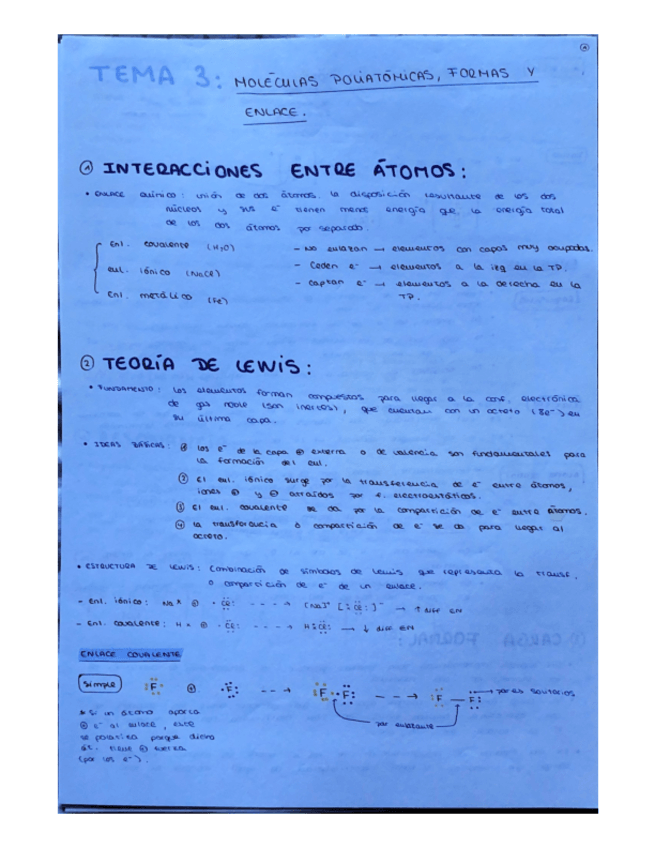 TEMA 3: MOLÉCULAS POLIATÓMICAS, FORMAS Y
ENLACE.
① INTERACCIONES ENTRE ÁTOMOS:
• ENLACE químico: unión de dos átomos. la disposición resultante de los dos
núcleos y sus e⁻ tienen menos energía que la energía total
de los dos átomos por separado.
Enl. covalente (H₂O)
enl. iónico (NaCl)
Enl. metálico (Fe)
- No enlazan → elementos con capas muy ocupadas.
- Ceden e⁻ → elementos a la izq en la TP.
- captan e⁻ → elementos a la derecha en la
TP.
② TEORÍA DE LEWIS:
• FUNDAMENTO: los elementos forman compuestos para llegar a la conf. electrónica
de gas noble (son inertes), que cuentan con un octeto (8e⁻) en
su última capa.
• IDEAS BÁSICAS: ① los e⁻ de la capa ⊕ externa o de valencia son fundamentales para
la formación del enl.
② El enl. iónico surge por la transferencia de e⁻ entre átomos,
iones ⊕ y ⊖ atraídos por f. electroestáticas.
③ El enl. covalente se da por la compartición de e⁻ entre átomos.
④ la transferencia o compartición de e⁻ se da para llegar al
octeto.
• ESTRUCTURA DE LEWIS: Combinación de símbolos de Lewis que representa la transf.
o compartición de e⁻ de un enlace.
- Enl. iónico: Na × ⊕ ·Cl: ---→ [Na]⁺ [:Cl:]⁻ → ↑ diff EN
- Enl. covalente: H × ⊕ ·Cl: ---→ H:Cl: → ↓ diff EN
ENLACE COVALENTE
simple :F· ⊕ ·F: --→ :F··F: ---→ :F—F: → pares solitarios
par enlazante
* Si un átomo aporta
⊕ e⁻ al enlace, este
se polariza porque dicho
át. tiene ⊕ fuerza
(por los e⁻).